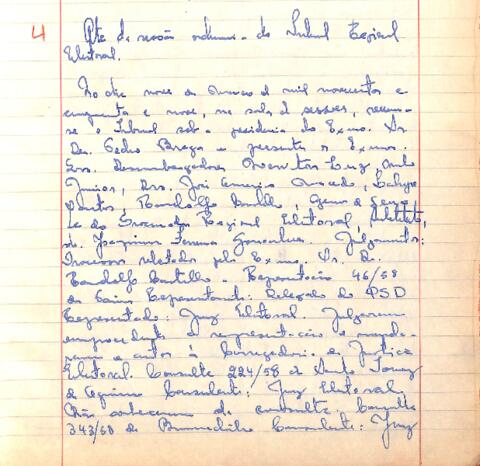 4 Ata da sessão ordinaria do Tribunal Regional
Eleitoral.
No dia nove de março de mil novecentos e
cinquenta e nove, na sala de sessões, reuniu-
se o Tribunal sob a presidencia do Exmo. Sr.
Des. Pedro Braga e presentes os Exmos.
Srs. Desembargadores Newton Luz,
Junior, Drs. José Americo Macedo,
Santos, Randolfo
do Procurador Regional Eleitoral, substituto,
dr. Joaquim Gonçalves. Julgamentos:
Processos relatados pelo Exmo. Sr. Dr.
Randolfo - Representação 46/58
de Representante: Delegado do PSD
Representado: Juiz Eleitoral. Julgaram
improcedente a representação e manda-
ram o autor à Corregedoria da Justiça
Eleitoral. Consulta 224/58 de
de Consulente: Juiz Eleitoral
Não conheceram da consulta. Consulta
343/58 de Consulente: Juiz